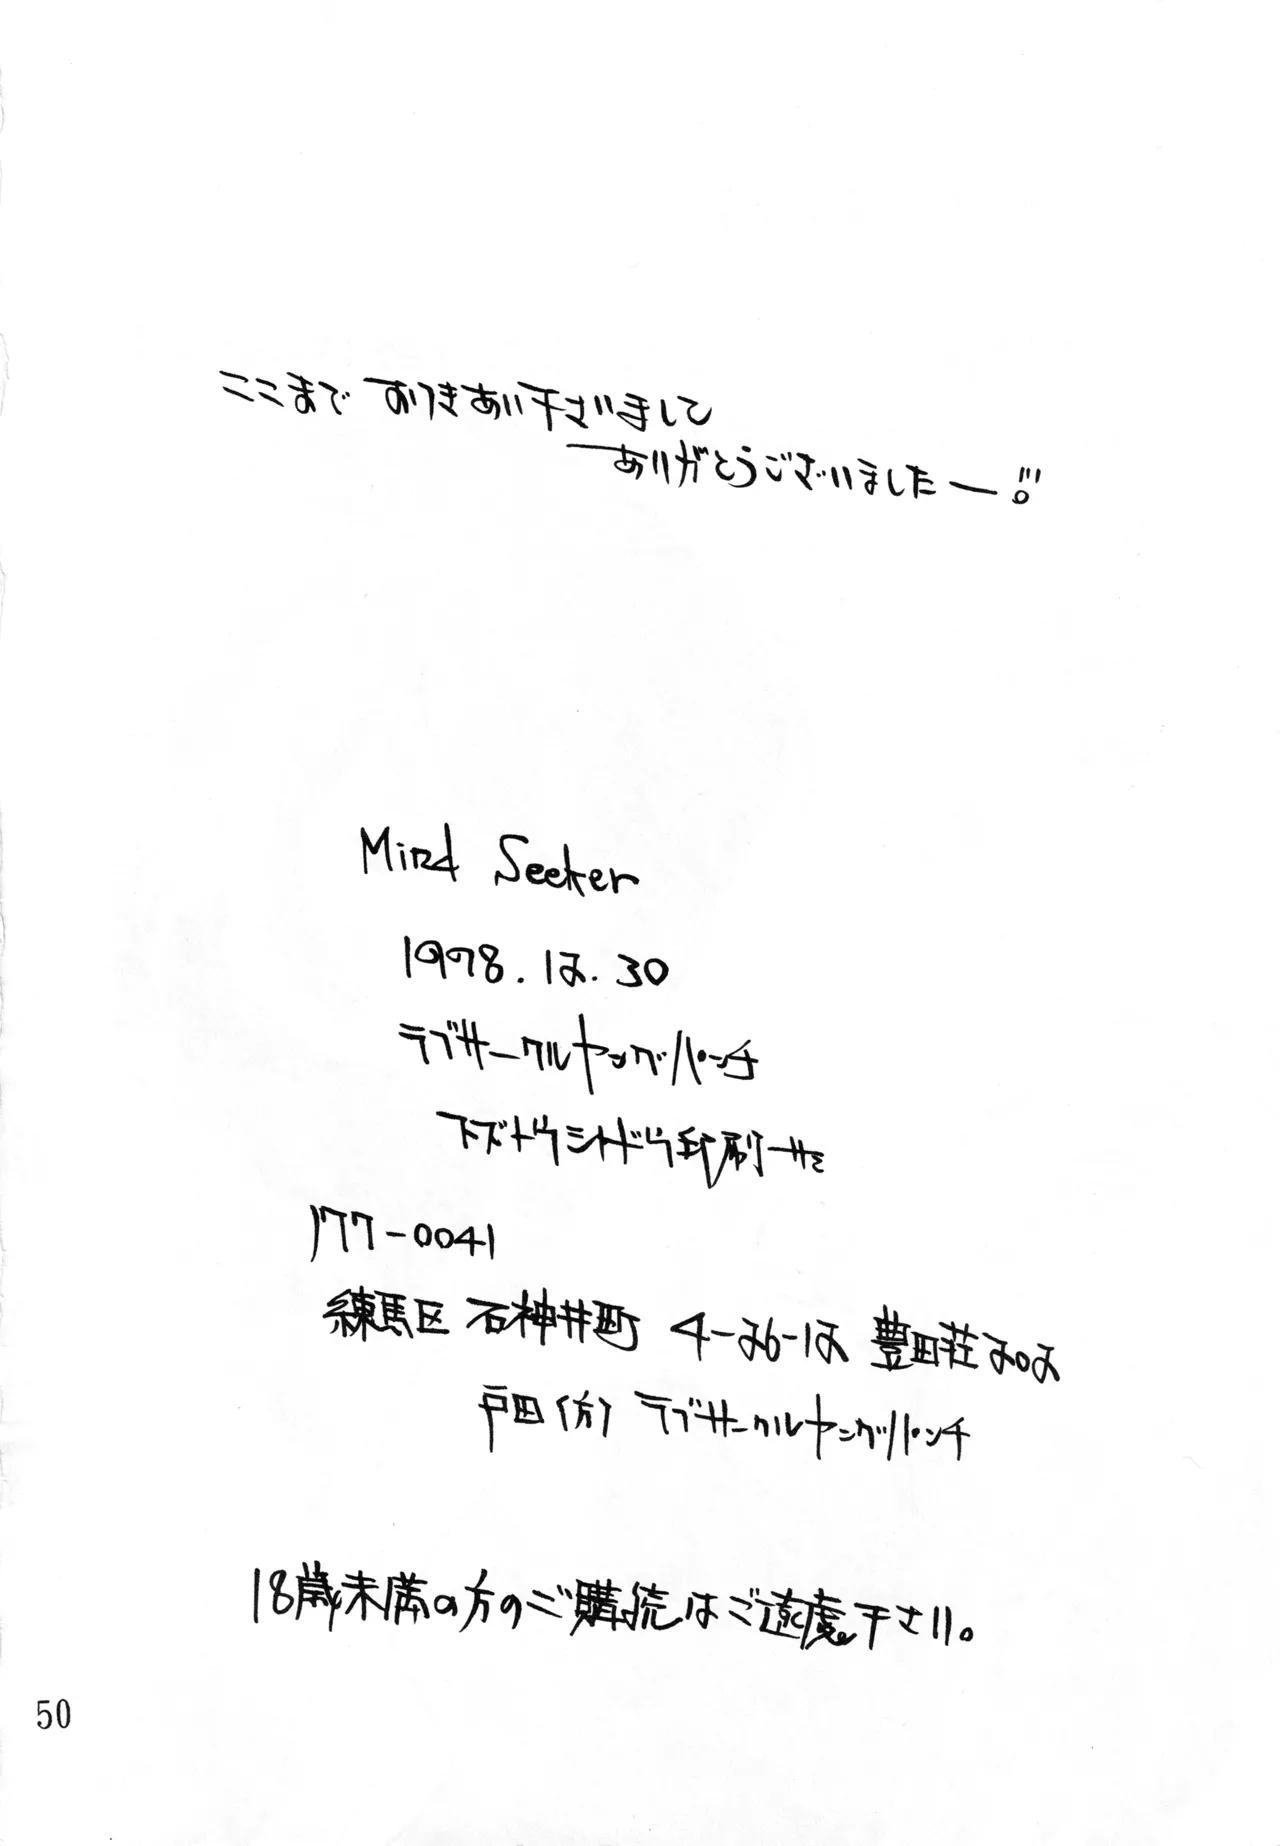 ここまで おつきあい下さいまして
ありがとうございましたー!!!
Mind Seeker
1998.12.30
ラブサークルヤングパンチ
印刷
177-0041
練馬区 石神井町 4-26-12 豊田荘202
戸田(方) ラブサークルヤングパンチ
18歳未満の方のご購読はご遠慮下さい。
50